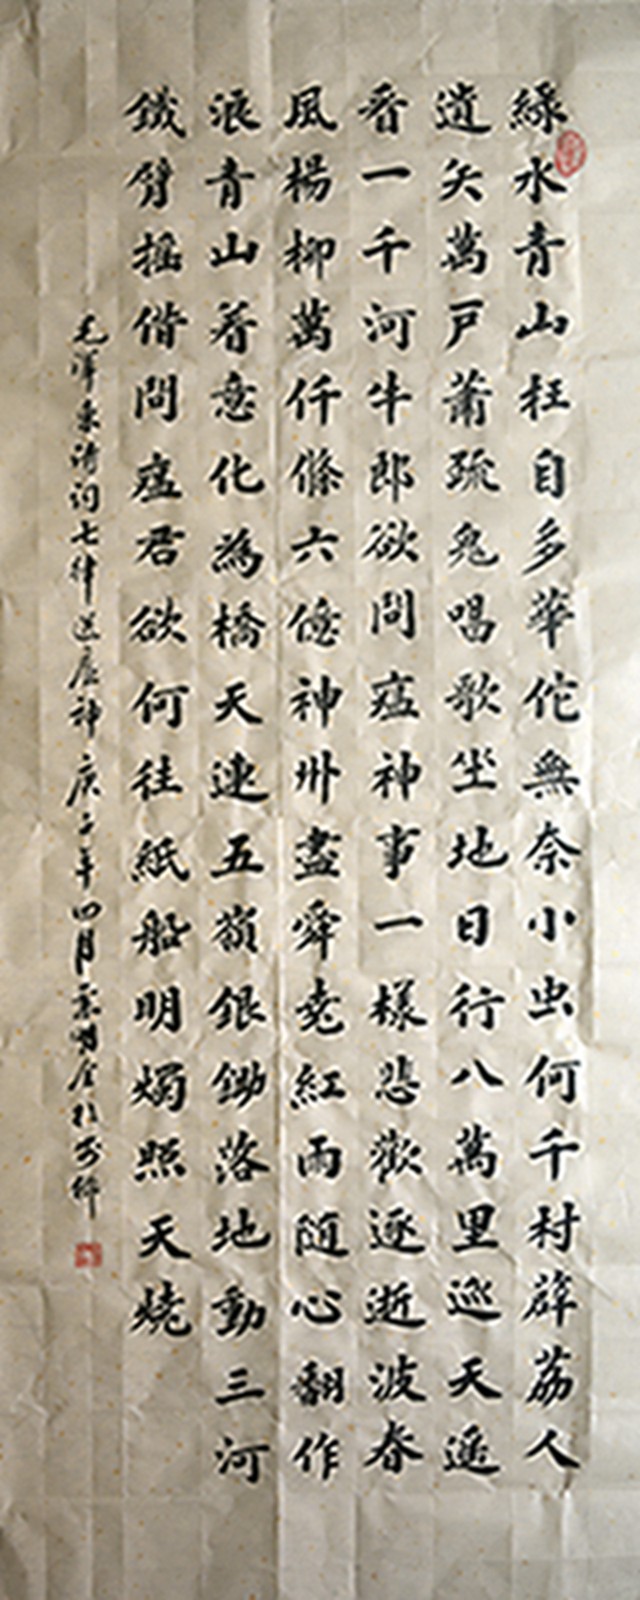 綠水青山枉自多華佗無奈小虫何千村薜荔人
遺矢萬戸蕭疏鬼唱歌坐地日行八萬里巡天遥
看一千河牛郎欲問瘟神事一樣悲歡逐逝波春
風楊柳萬仟條六億神州盡舜尭紅雨随心翻作
浪青山着意化為橋天連五嶺銀鋤落地動三河
鐵臂摇借問瘟君欲何往紙船明燭照天燒
毛澤東诗词七律送瘟神庚子年四月